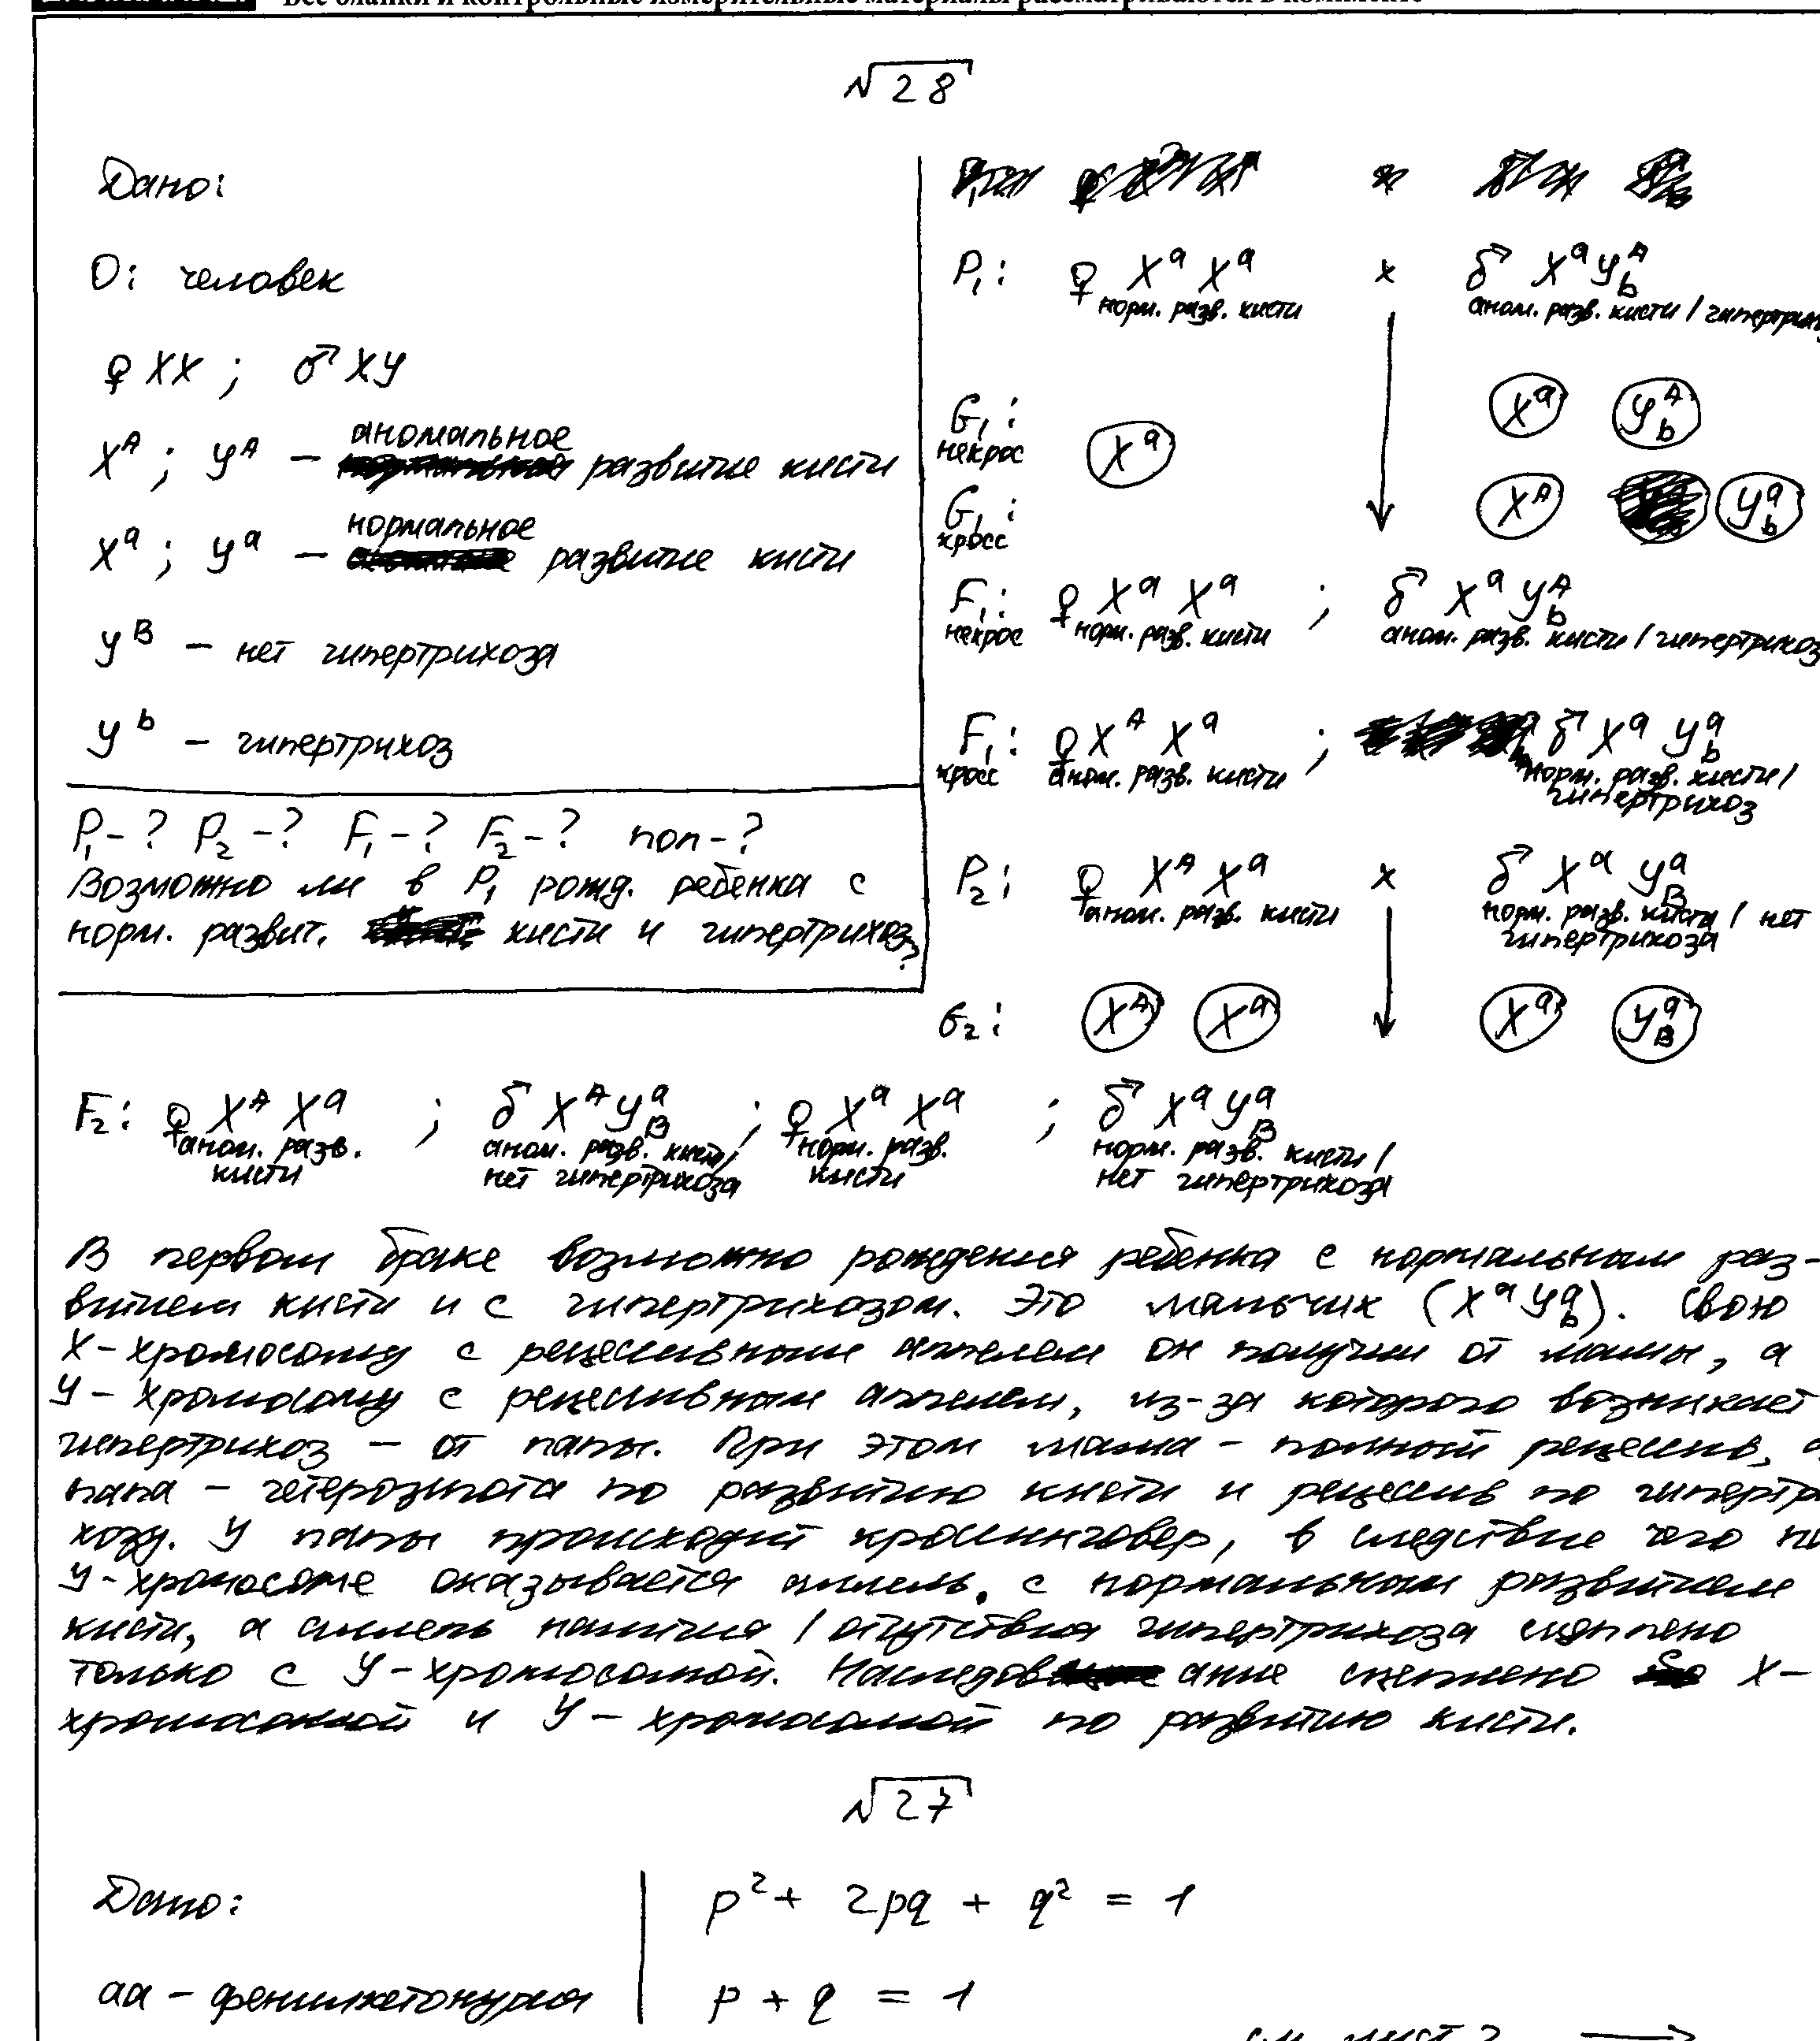 Все бланки и контрольные измерительные материалы рассматриваются в комплекте
№28
Дано:
O: человек
♀ XX ; ♂ XY
X^A ; Y^A – аномальное развитие кисти
X^a ; Y^a – нормальное развитие кисти
Y^B – нет гипертрихоза
Y^b – гипертрихоз
P₁-? P₂-? F₁-? F₂-? пол-?
Возможно ли в P₁ рожд. ребенка с
норм. развит. кисти и гипертрихоз?
P₁: ♀ X^a X^a x ♂ X^a Y^A_b
норм. разв. кисти аном. разв. кисти /
G₁: некрос X^a X^a Y^A_b
G₁: кросс X^A Y^a_b
F₁: ♀ X^a X^a ; ♂ X^a Y^A_b
некрос норм. разв. кисти аном. разв. кисти / гипертрихоз
F₁: ♀ X^A X^a ; ♂ X^a Y^a_b
кросс аном. разв. кисти норм. разв. кисти /
гипертрихоз
P₂: ♀ X^A X^a x ♂ X^a Y^a_B
аном. разв. кисти норм. разв. кисти / нет
гипертрихоза
G₂: X^A X^a X^a Y^a_B
F₂: ♀ X^A X^a ; ♂ X^A Y^a_B ; ♀ X^a X^a ; ♂ X^a Y^a_B
аном. разв. аном. разв. кисти/ норм. разв. норм. разв. кисти /
кисти нет гипертрихоза кисти нет гипертрихоза
В первом браке возможно рождения ребенка с нормальным раз-
витием кисти и с гипертрихозом. Это мальчик (X^a Y^a_b). Свою
X-хромосому с рецессивным аллелем он получил от мамы, а
Y-хромосому с рецессивным аллелем, из-за которого возникает
гипертрихоз – от папы. При этом мама – полный рецессив, а
папа – гетерозигота по развитию кисти и рецессив по гипертри
хозу. У папы происходит кроссинговер, в следствие чего
Y-хромосоме оказывается аллель, с нормальным развитием
кисти, а аллель наличия / отсутствия гипертрихоза сцеплено
только с Y-хромосомой. Наследование сцеплено X-
хромосомой и Y-хромосомой по развитию кисти.
№27
Дано:
aa – фенилкетонурия
p² + 2pq + q² = 1
p + q = 1
см. лист 2 →